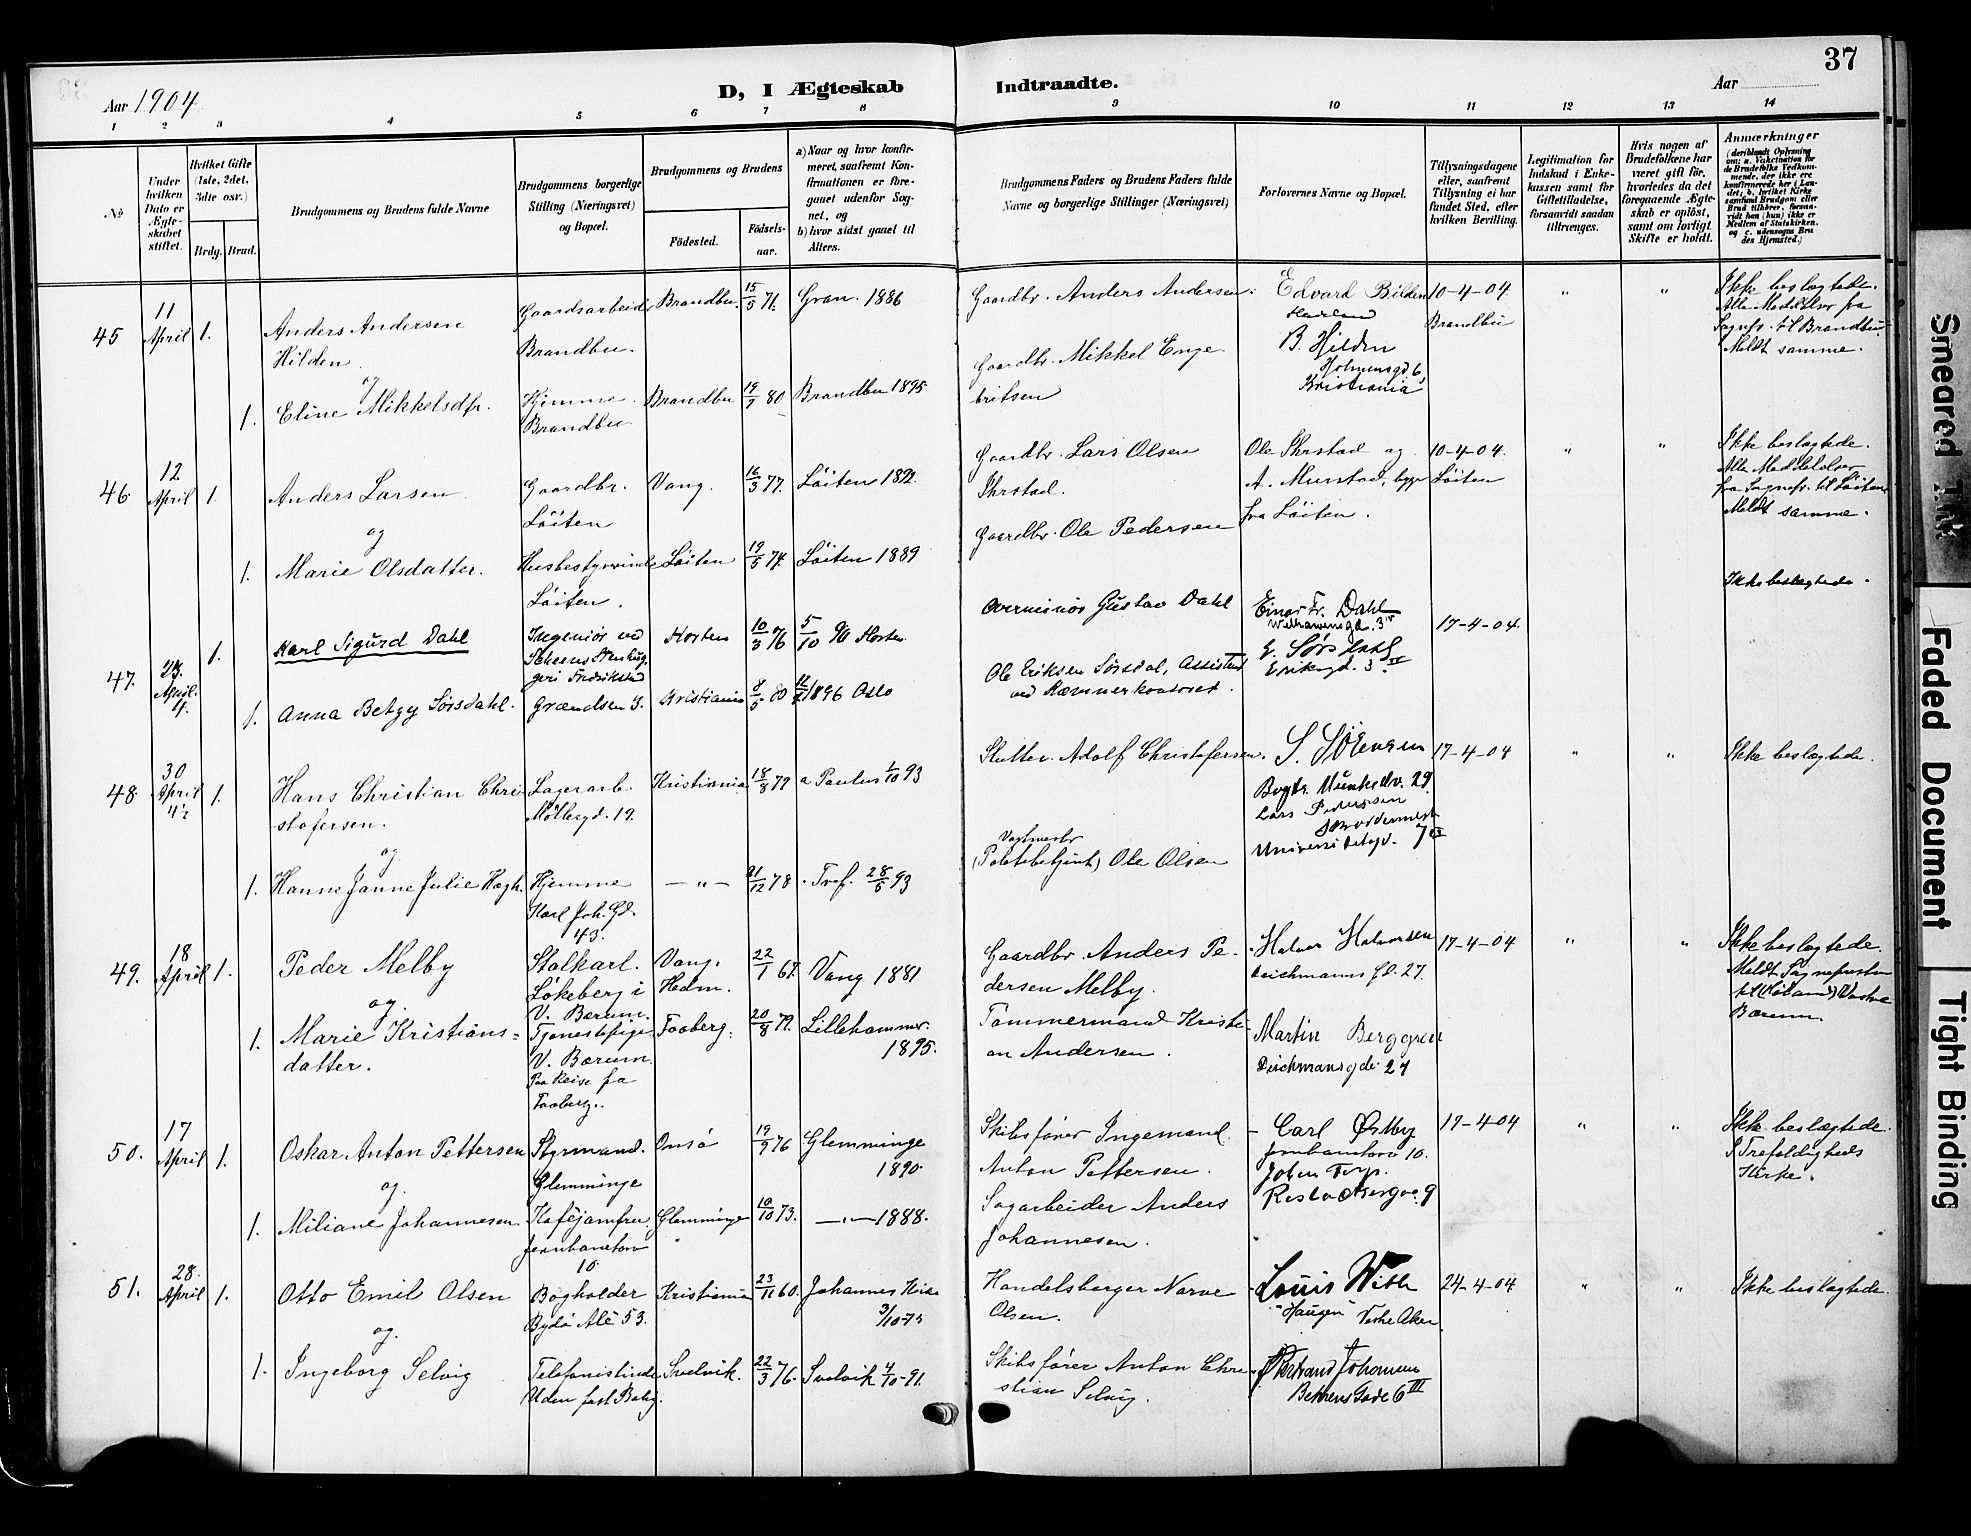 37
Aar 1904
D, I Ægteskab
Indtraadte.
Aar
1 2 3 4 5 6 7 8 9 10 11 12 13 14
No
Under hvilken Dato er Ægteskabet stiftet.
Hvilket Gifte (1ste, 2det, 3die osv.)
Brdg. Brud.
Brudgommens og Brudens fulde Navne
Brudgommens borgerlige Stilling (Næringsvei) og Bopæl.
Brudgommens og Brudens
Födested.
Födselsaar.
a) Naar og hvor konfirmeret, saafremt Konfirmationen er foregaaet udenfor Sognet, og
b) hvor sidst gaaet til Alters.
Brudgommens Faders og Brudens Faders fulde Navne og borgerlige Stillinger (Næringsvei)
Forlovernes Navne og Bopæl.
Tillysningsdagene eller, saafremt Tillysning ei har fundet Sted, efter hvilken Bevilling.
Legitimation for Indskud i Enkekassen samt for Giftetilladelse, forsaavidt saadan tiltrænges.
Hvis nogen af Brudefolkene har været gift för, hvorledes da det foregaaende Ægteskab er oplöst, samt om lovligt Skifte er holdt.
Anmærkninger
(deriblandt Oplysning om: a. Vakcination for de Brudefolks Vedkommende, der ikke ere konfirmerede her i Landet; b. hvilket Kirkesamfund Brudgom eller Brud tilhörer, forsaavidt han (hun) ikke er Medlem af Statskirken, og c. udensogns Brudes Hjemsted.)
45 11 April 1. Anders Andersen Hilden
Gaardsarbeider Brandbu.
Brandbu. 15/5 76. Gran. 1886
Gaardbr. Anders Andersen.
Edvard Bilden
B. Hilden
Holmensgd. 6, Kristiania
10-4-04. Brandbu
" "
Ikke beslægtede.
Alle Meddelelser fra Sognepr. til Brandbu. Meldt samme.
og
1. Eline Mikkelsdtr.
Hjemme. Brandbu
Brandbu 19/7 80 Brandbu 1895
Gaardbr. Mikkel Engebritsen
46 12 April 1. Anders Larsen
Gaardbr. Löiten
Vang. 16/3 77. Löiten 1892.
Gaardbr. Lars Olsen Ihrstad.
Ole Ihrstad og A. Murstad, begge fra Löiten.
10-4-04. Löiten
" "
Ikke beslægtede.
Alle Meddelelser fra Sognepr. til Löiten. Meldt samme.
og
1. Marie Olsdatter.
Husbestyrerinde Löiten.
Löiten 19/5 74. Löiten 1889
Gaardbr. Ole Pedersen
47. 23 April. 1. Karl Sigurd Dahl
Ingeniør ved Fredrikstad
Horten 10/3 76 5/10 90 Horten
Overminør Gustav Dahl
Einar Fr. Dahl
E. Sørsdahl
Eriksgd. 3 II
17-4-04.
Ikke beslægtede.
1. Anna Betzy Sørsdahl.
Grændsen 3.
Kristiania 8/5 80 1896 Oslo
Ole Eriksen Sørsdal, Assistent ved Kæmnerkontoret.
48 30 April 4½ 1. Hans Christian Christofersen.
Lagerarb. Møllergd. 19.
Kristiania 18/8 79 a Paulus 1/10 93
Slutter. Adolf Christofersen.
S. Sörensen
Bogts. Munksdv. 29.
Lars Pedersen
Universitetsgd. 7 III
17-4-04
" "
Ikke beslægtede.
og
1. Hanne Janne Julie Hagh.
Hjemme Karl Joh. Gd. 43.
—"— 21/12 78. Tref. 28/5 93
Vagtmester (Politibetjent) Ole Olsen
49. 18 April 1. Peder Melby
Staldkarl. Løkeberg i V. Bærum.
Vang, Hedm. 22/1 67. Vang 1881
Gaardbr. Anders Pedersen Melby.
Halvor Halvorsen
Deichmanns Gd. 27.
17-4-04
" "
Ikke beslægtede.
Meldt Sognepresten til Vestre Bærum.
og
1. Marie Kristiansdatter.
Tjenestepige V. Bærum. Paa Reise fra Faaberg.
Faaberg. 20/8 79. Lillehammer. 1895.
Tømmermand Kristian Andersen.
Martin Berggren
Deichmansgde 27
50. 17 April 1. Oskar Anton Pettersen
Styrmand. Glemminge
Onsö 19/9 76 Glemminge 1890.
Skibsfører Ingemand Anton Pettersen.
Carl Østby
Jernbanetorv 10.
Johan Torp.
19-4-04
" "
Ikke beslægtede.
I Trefoldigheds Kirke.
og
1. Miliane Johannesen.
Kaféjomfru. Jernbanetorv 10
Glemminge 10/10 73. —"— 1888.
Sagarbeider Anders Johannesen.
51. 28. April 1. Otto Emil Olsen
Bogholder Bygdö Alé 53.
Kristiania 23/11 60. Johannes Kirke 3/10-75
Handelsborger Narve Olsen.
Louis With
"Haugen" Vestre Aker.
24-4-04
" "
Ikke beslægtede.
og.
1. Ingeborg Selvig
Telefonistinde Uden fast Bolig.
Svelvik. 22/3 76. Svelvik 4/10-91.
Skibsfører Anton Christian Selvig.
Behrens Gade 6 III
Smeared Ink
Faded Document
Tight Binding